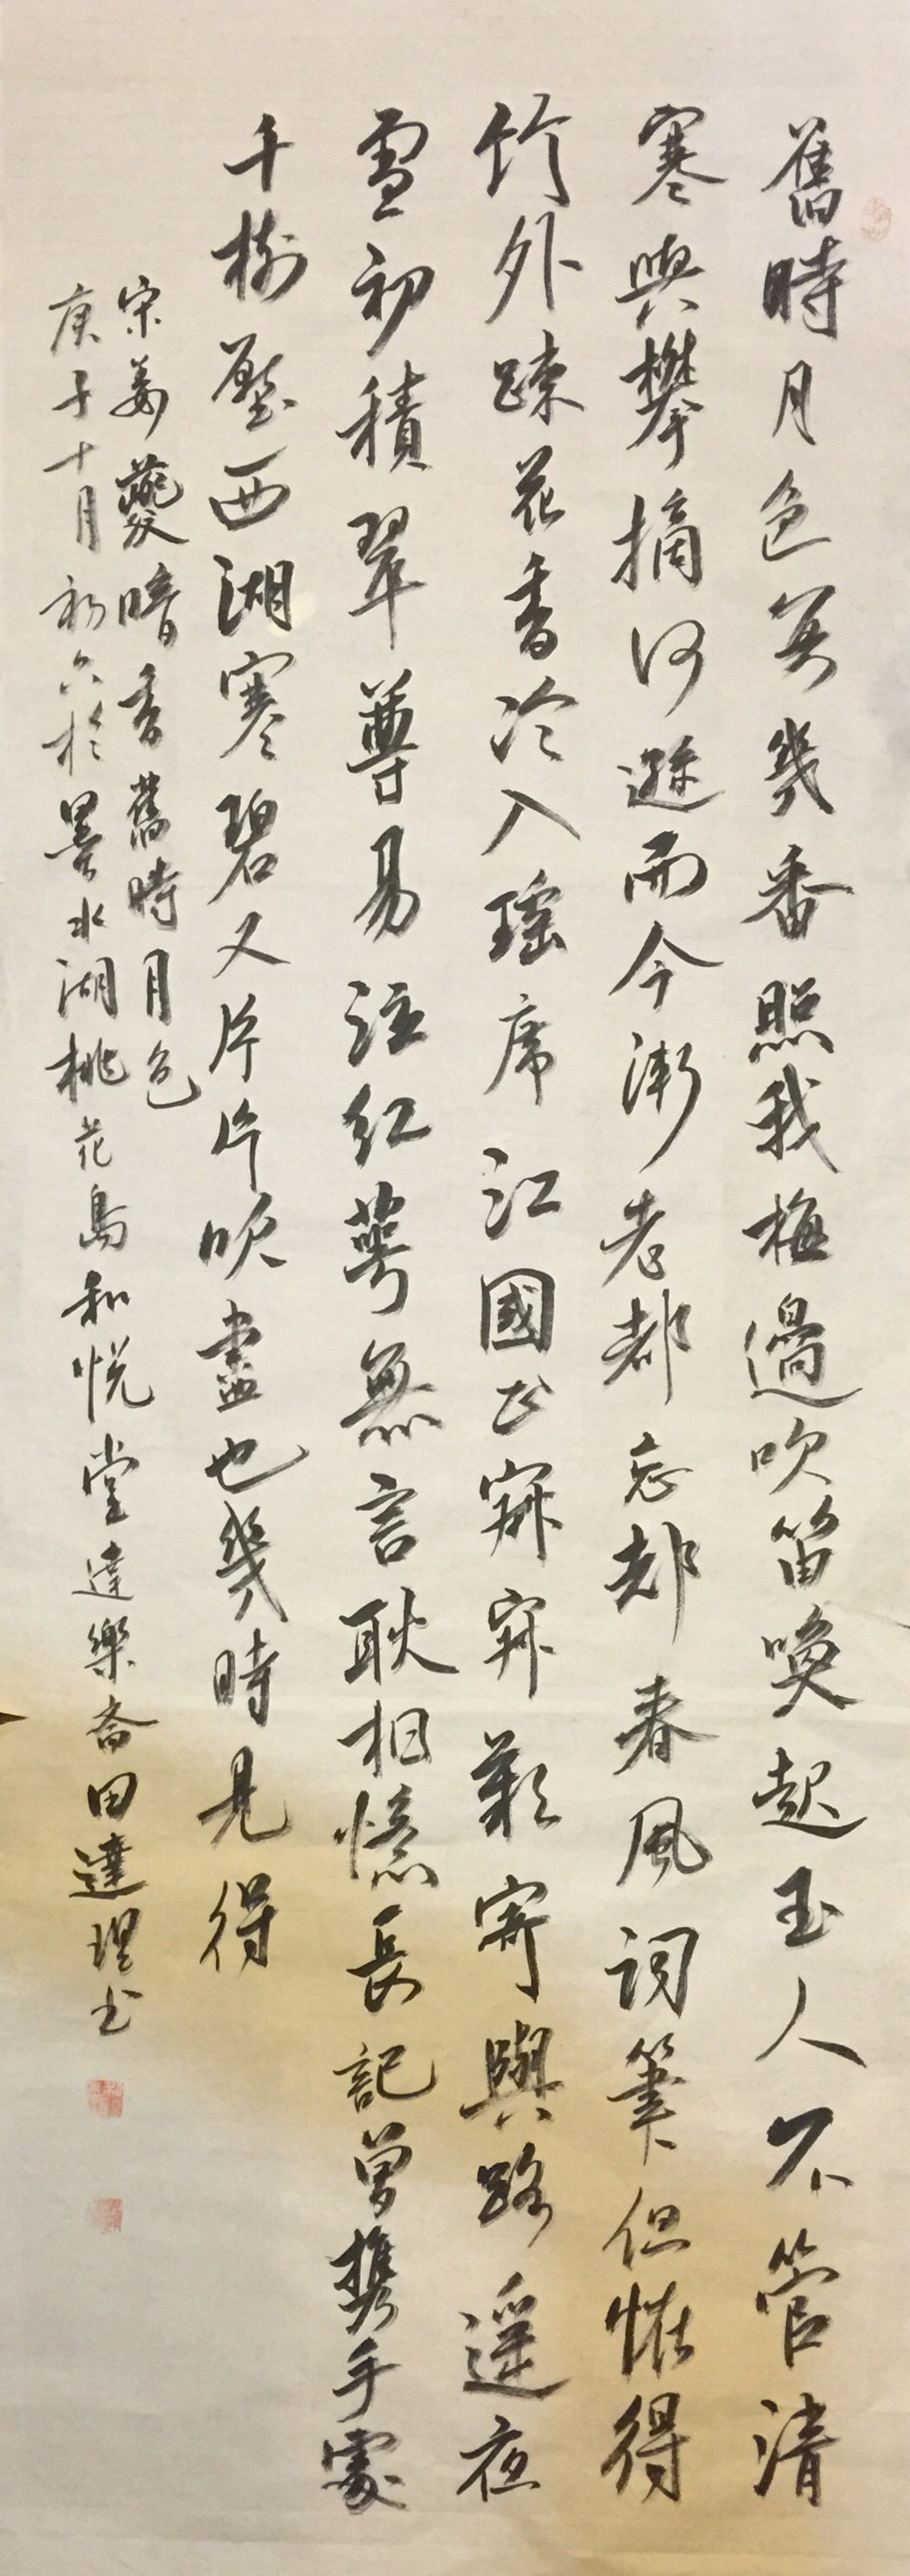 舊時月色算幾番照我梅邊吹笛喚起玉人不管清
寒與攀摘何遜而今漸老都忘却春風詞筆但怪得
竹外疎花香冷入瑤席江國正寂寂歎寄與路遥夜
雪初積翠尊易泣紅萼無言耿相憶長記曾攜手處
千樹壓西湖寒碧又片片吹盡也幾時見得
宋姜夔暗香舊時月色
庚子十月初六於墨水湖桃花島和悅堂達樂齋田達理书